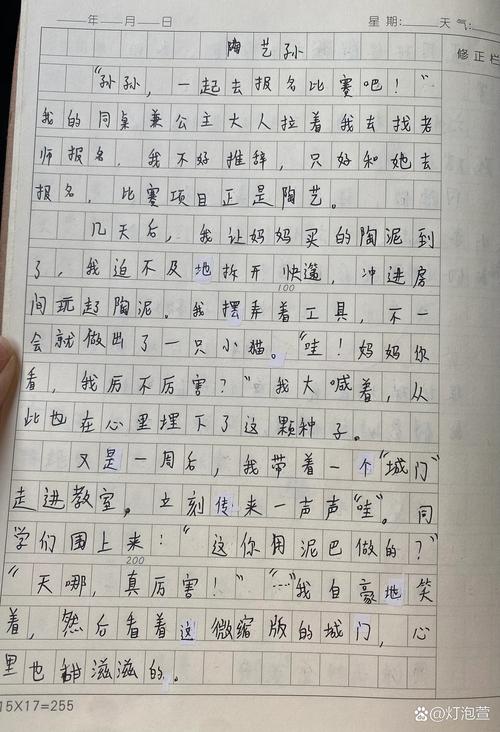 年 月 日 星期: 天气:
修正栏
陶艺孙
“孙孙，一起去报名比赛吧！”
我的同桌兼公主大人拉着我去找老
师报名，我不好推辞，只好和她去
报名，比赛项目正是陶艺。
几天后，我让妈妈买的陶泥到
了，我迫不及地拆开快递，冲进房
100
间玩起陶泥。我摆弄着工具，不一
会就做出了一只小猫。“哇！妈妈你
看，我厉不厉害？”我大喊着，从
此也在心里埋下了这颗种子。
又是一周后，我带着一个“城门”
走进教室。立刻传来一声声“哇”。同
学们围上来：“这你用泥巴做的？”
200
“天哪，真厉害！”“…”我自豪地笑
着，然后看着这微缩版的城门，心
里也甜滋滋的。
15X17=255
灯泡萱